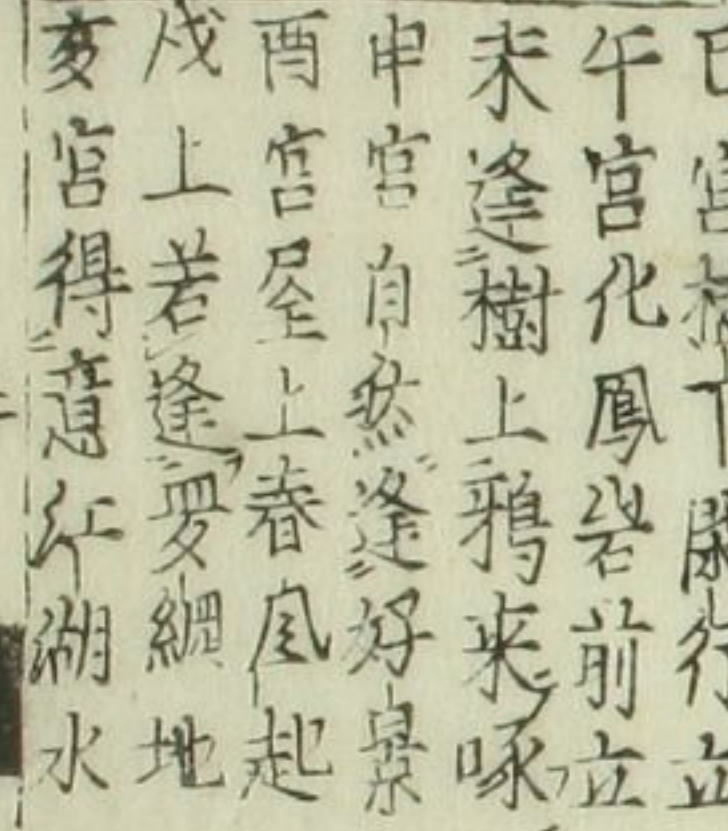 宮下行立
午宮化鳳岩前立
未逢樹上鴉来啄
申宮自然逢好景
酉宮屋上春風起
戌上若逢羅網地
亥宮得意江湖水